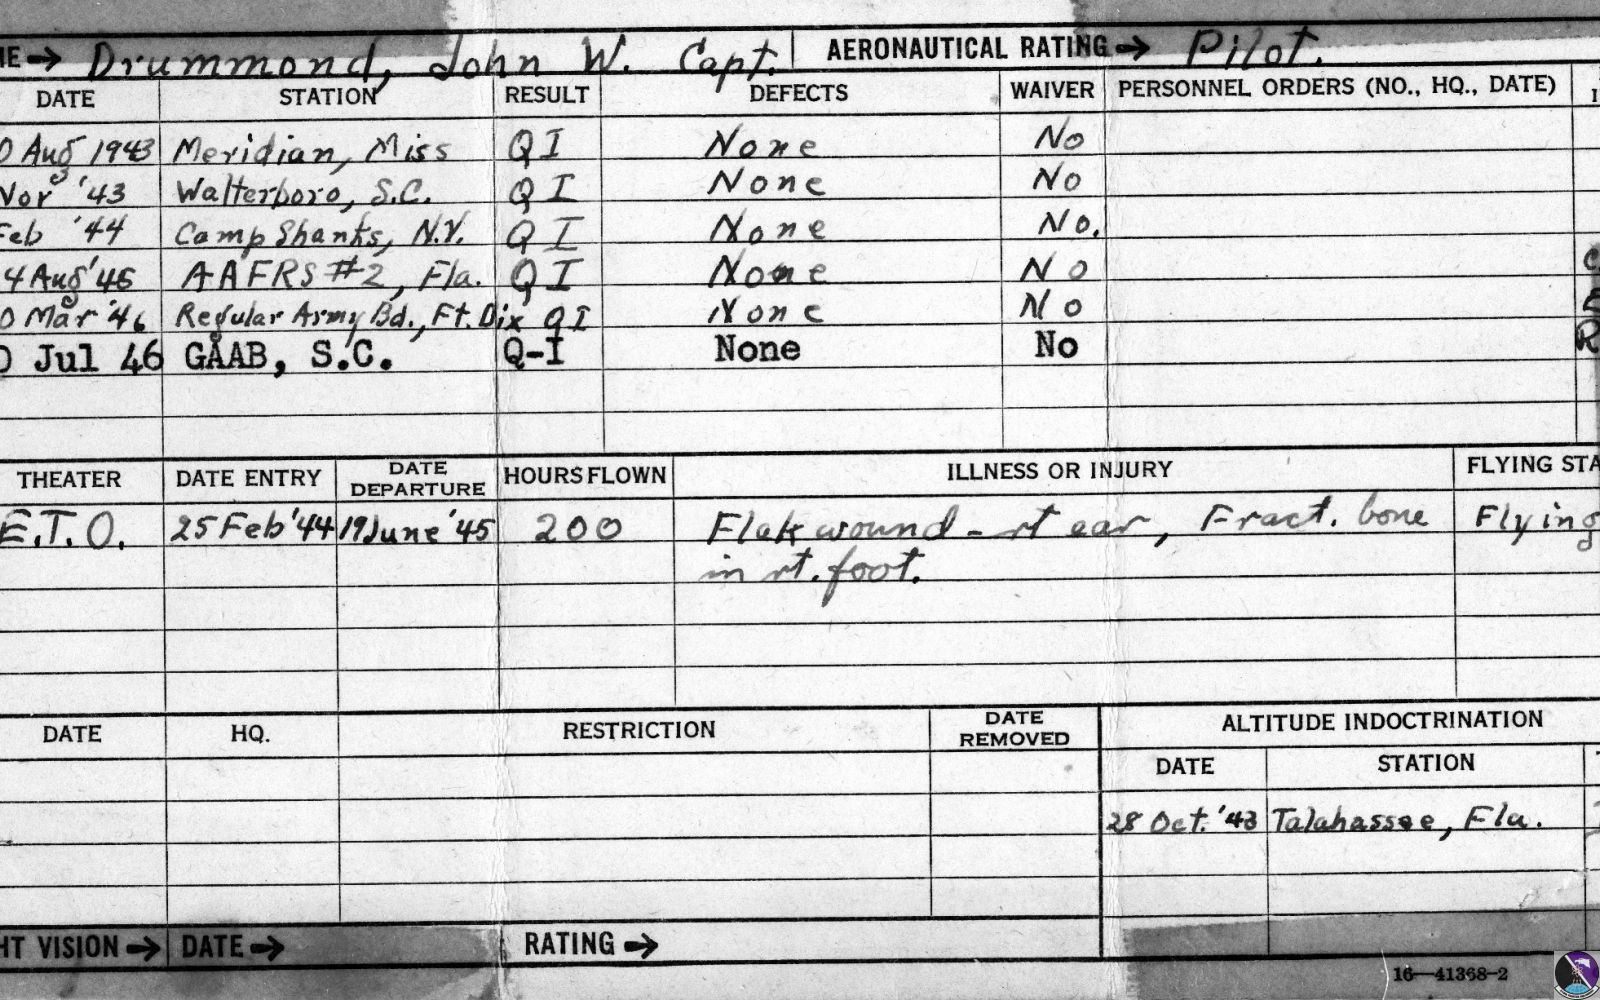 ME→ Drummond, John W. Capt. AERONAUTICAL RATING→ Pilot.
DATE STATION RESULT DEFECTS WAIVER PERSONNEL ORDERS (NO., HQ., DATE)
0 Aug 1943 Meridian, Miss QI None No
Nov '43 Walterboro, S.C. QI None No
Feb '44 Camp Shanks, N.Y. QI None No.
4 Aug '45 AAFRS #2, Fla. QI None No
0 Mar '46 Regular Army Bd., Ft. Dix QI None No
0 Jul 46 GAAB, S.C. Q-I None No
THEATER DATE ENTRY DATE DEPARTURE HOURS FLOWN ILLNESS OR INJURY FLYING STA
E.T.O. 25 Feb '44 19 June '45 200 Flak wound - rt ear, Fract. bone Flying
in rt. foot.
DATE HQ. RESTRICTION DATE REMOVED ALTITUDE INDOCTRINATION
DATE STATION
28 Oct. '43 Talahassee, Fla.
HT VISION→ DATE→ RATING→
16—41368-2